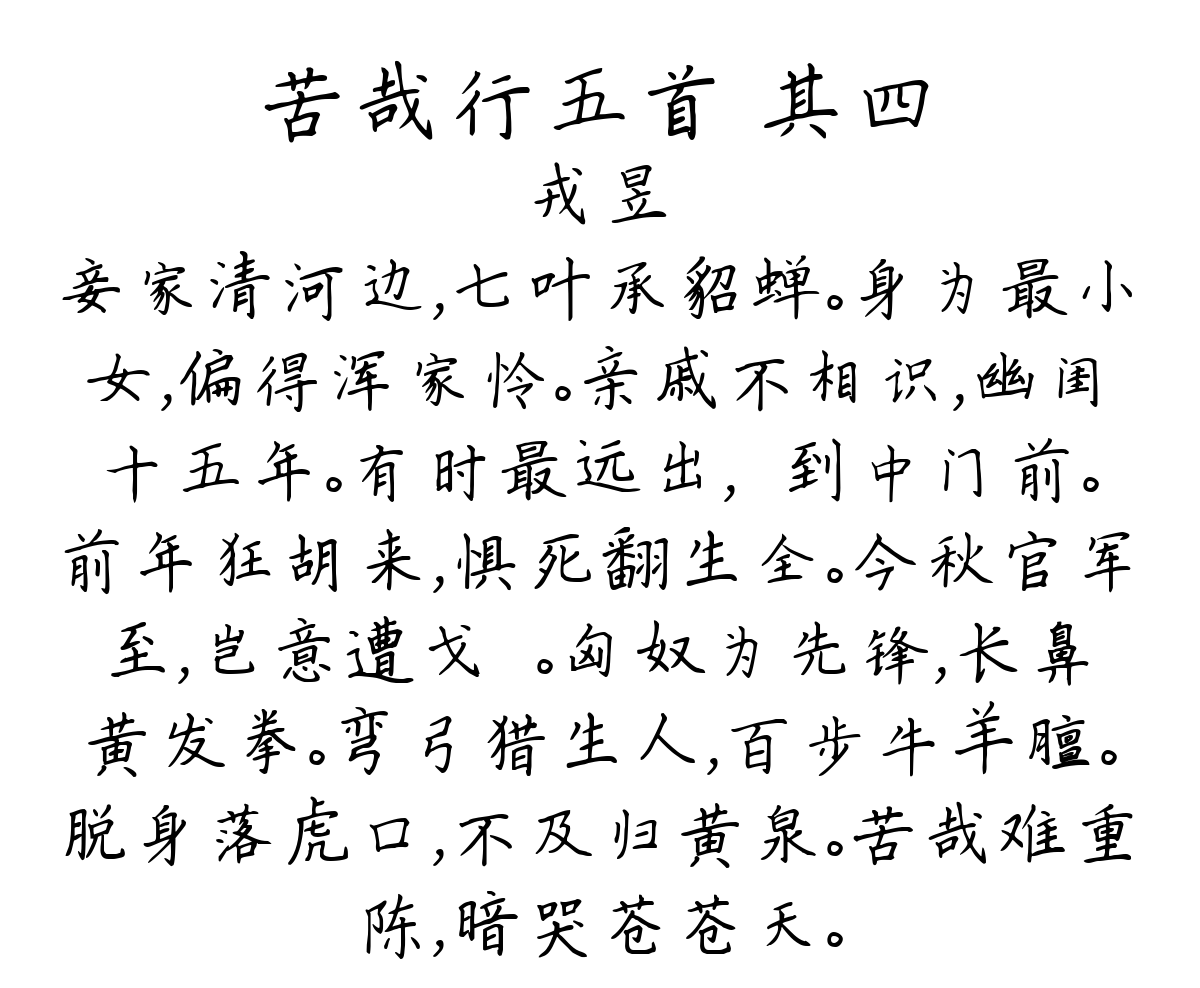 苦哉行五首 其四
戎昱
妾家清河边,七叶承貂蝉。身为最小
女,偏得浑家怜。亲戚不相识,幽闺
十五年。有时最远出, 到中门前。
前年狂胡来,惧死翻生全。今秋官军
至,岂意遭戈 。匈奴为先锋,长鼻
黄发拳。弯弓猎生人,百步牛羊膻。
脱身落虎口,不及归黄泉。苦哉难重
陈,暗哭苍苍天。